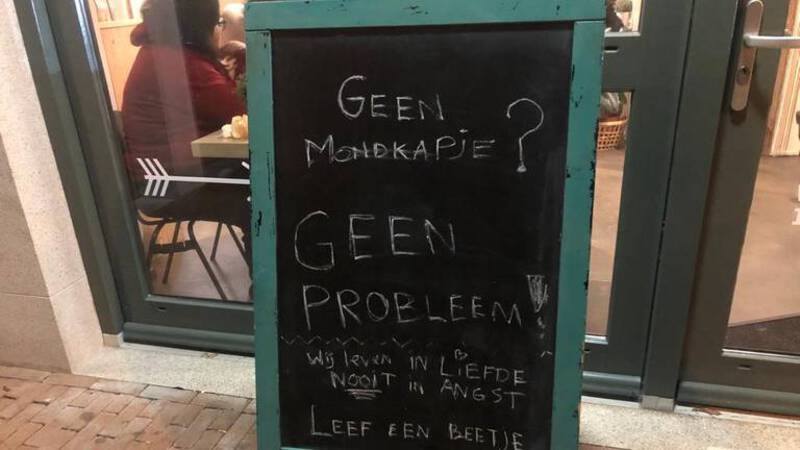 GEEN
MONDKAPJE ?
GEEN
PROBLEEM!
Wij leven IN LIEFDE
NOOIT in ANGST
LEEF EEN BEETJE